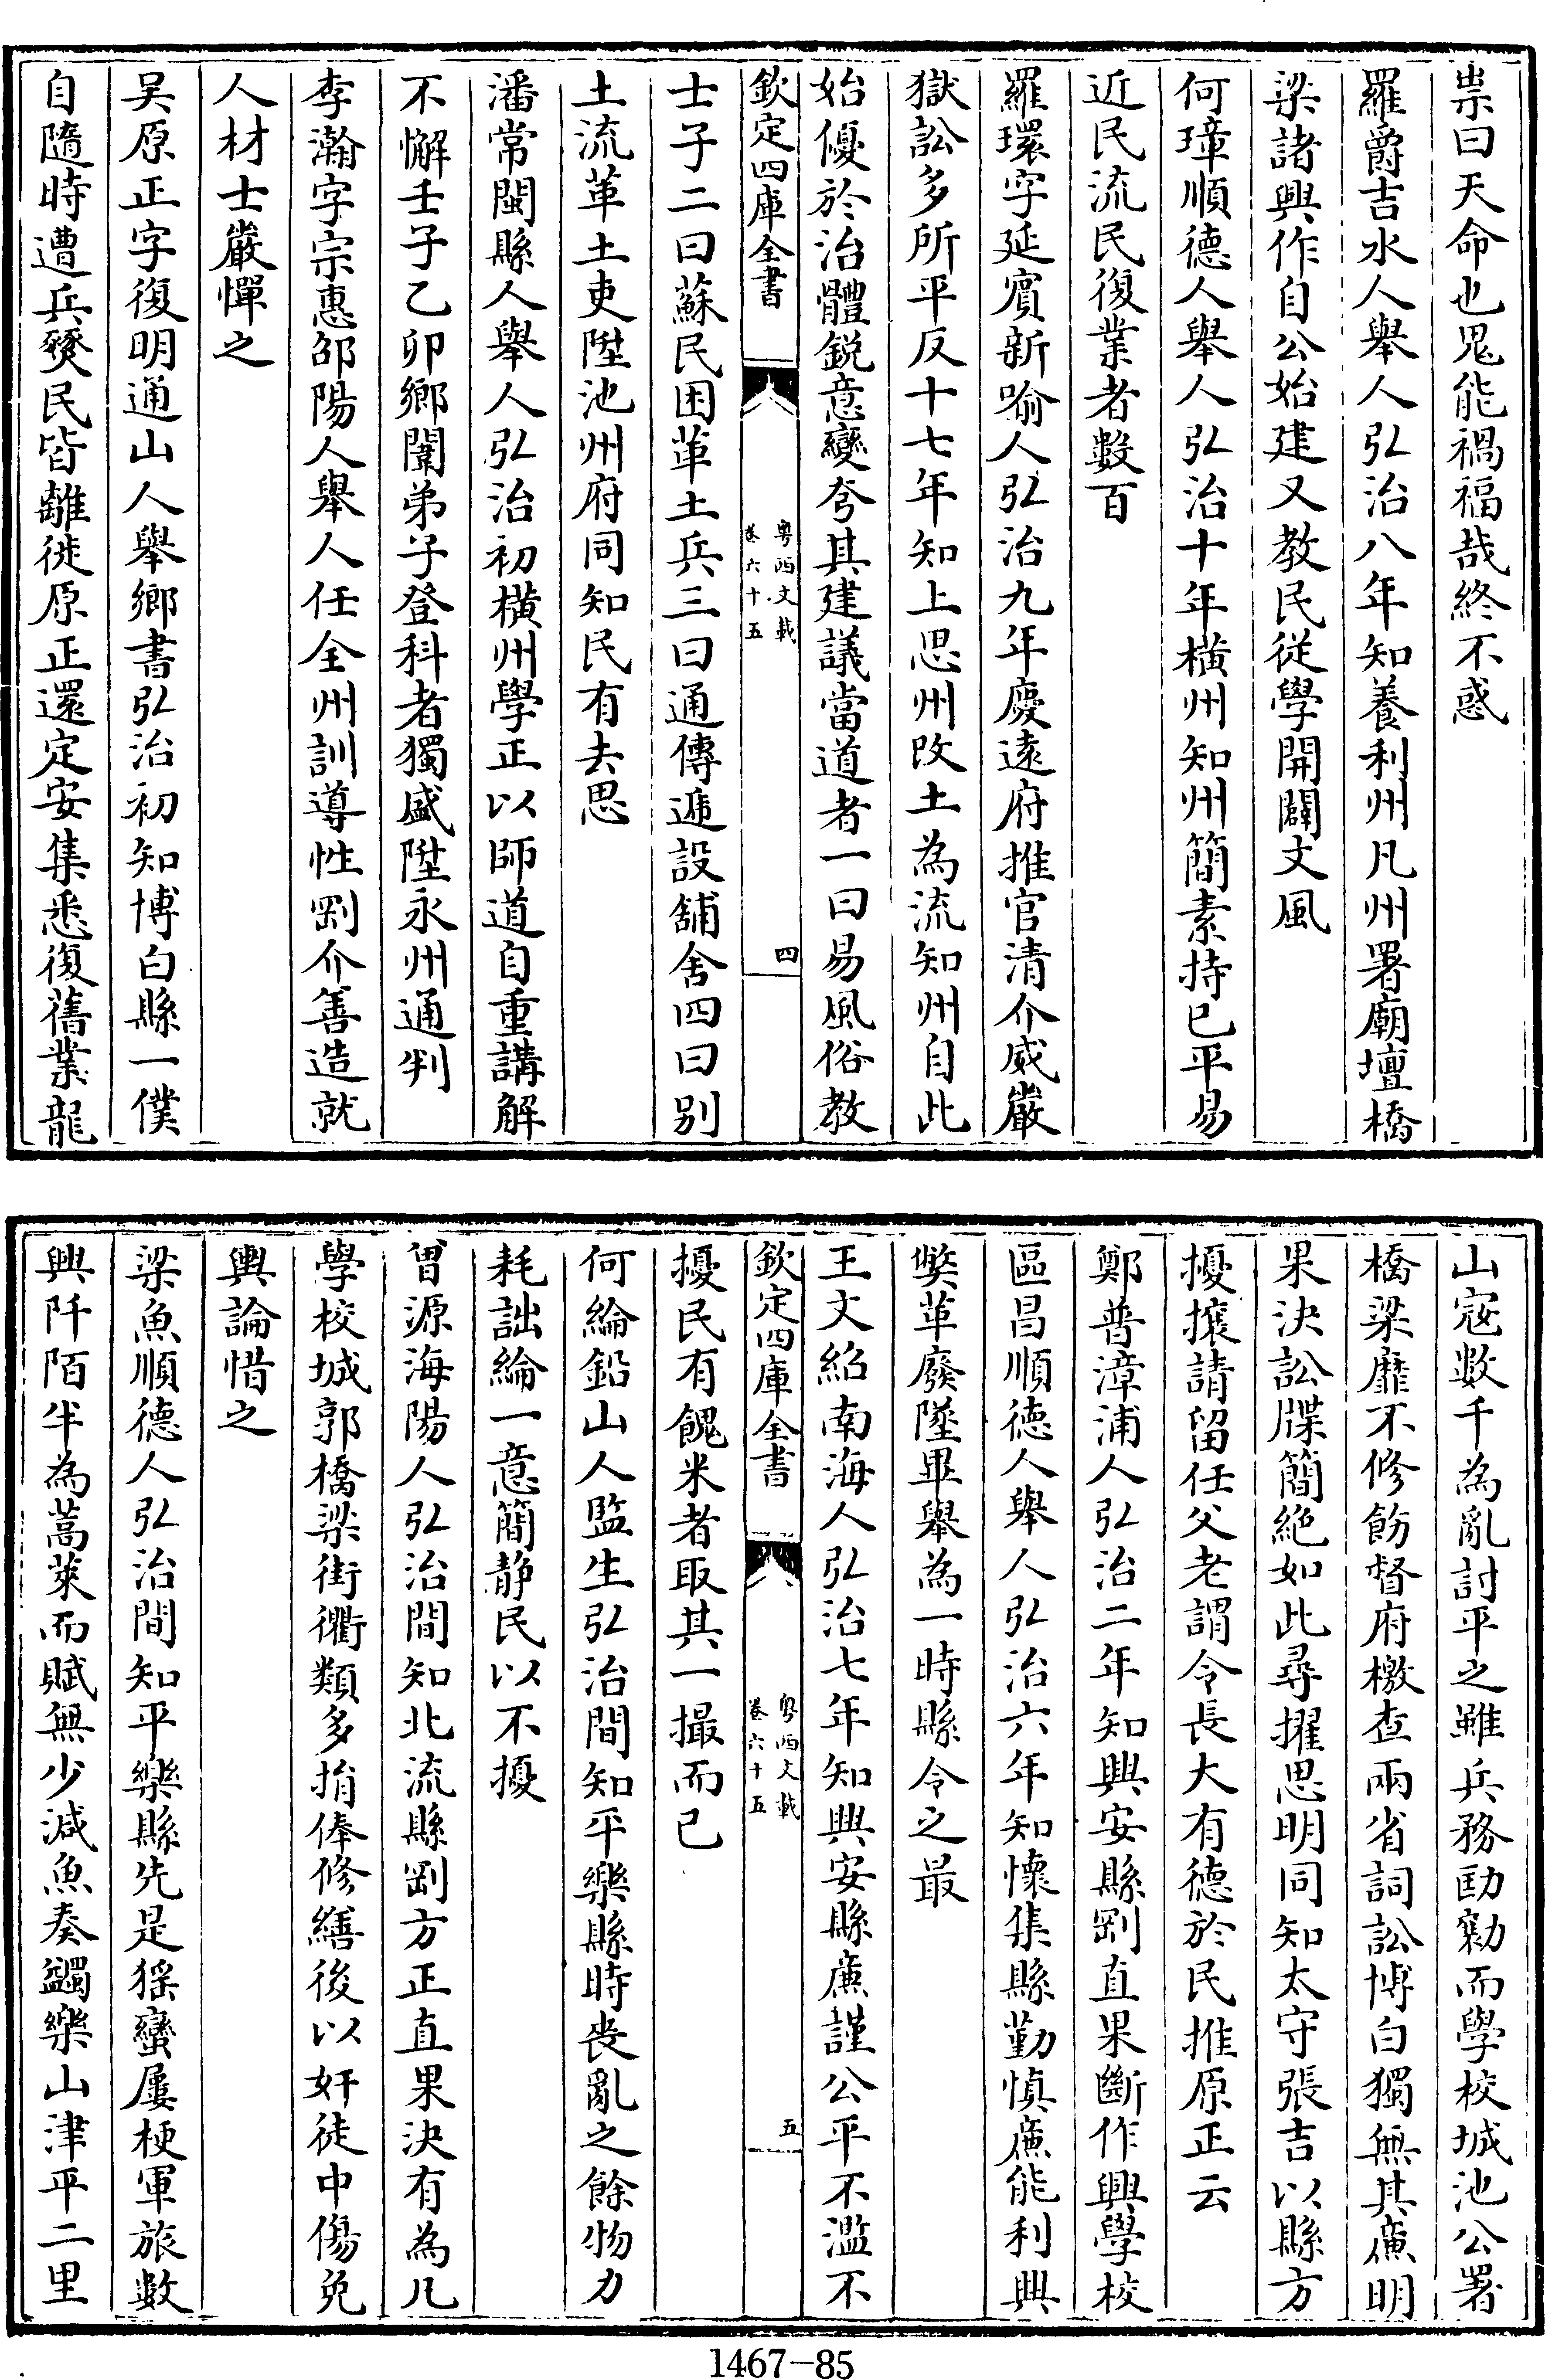 祟曰天命也鬼能禍福哉終不惑
羅爵吉水人舉人弘治八年知養利州凡州署廟壇橋
梁諸興作自公始建又教民從學開闢文風
何璋順德人舉人弘治十年橫州知州簡素持已平易
近民流民復業者數百
羅環字延賔新喻人弘治九年慶遠府推官清介威嚴
獄訟多所平反十七年知上思州改土為流知州自此
始優於治體鋭意變夸其建議當道者一曰易風俗教
欽定四庫全書
粤西文載
卷六十五
四
士子二曰蘇民困革土兵三曰通傳逓設舖舍四曰别
土流革土吏陞池州府同知民有去思
潘常閩縣人舉人弘治初橫州學正以師道自重講解
不懈壬子乙卯鄉闈弟子登科者獨盛陞永州通判
李瀚字宗惠邵陽人舉人任全州訓導性剛介善造就
人材士嚴憚之
吴原正字復明通山人舉鄉書弘治初知博白縣一僕
自隨時遭兵燹民皆離徙原正還定安集悉復舊業龍
山宼數千為亂討平之雖兵務劻勷而學校城池公署
橋梁靡不修飭督府檄查兩省詞訟博白獨無其亷明
果決訟牒簡絶如此尋擢思明同知太守張吉以縣方
擾攘請留任父老謂令長大有德於民推原正云
鄭普漳浦人弘治二年知興安縣剛直果斷作興學校
區昌順德人舉人弘治六年知懷集縣勤慎亷能利興
獘革廢墜畢舉為一時縣令之最
王文紹南海人弘治七年知興安縣亷謹公平不濫不
欽定四庫全書
粤西文載
卷六十五
五
擾民有餽米者取其一撮而已
何綸鉛山人監生弘治間知平樂縣時丧亂之餘物力
耗詘綸一意簡静民以不擾
曾源海陽人弘治間知北流縣剛方正直果決有為凡
學校城郭橋梁街衢類多捐俸修繕後以奸徒中傷免
輿論惜之
梁魚順德人弘治間知平樂縣先是猺蠻屢梗軍旅數
興阡陌半為蒿萊而賦無少減魚奏蠲樂山津平二里
1467-85